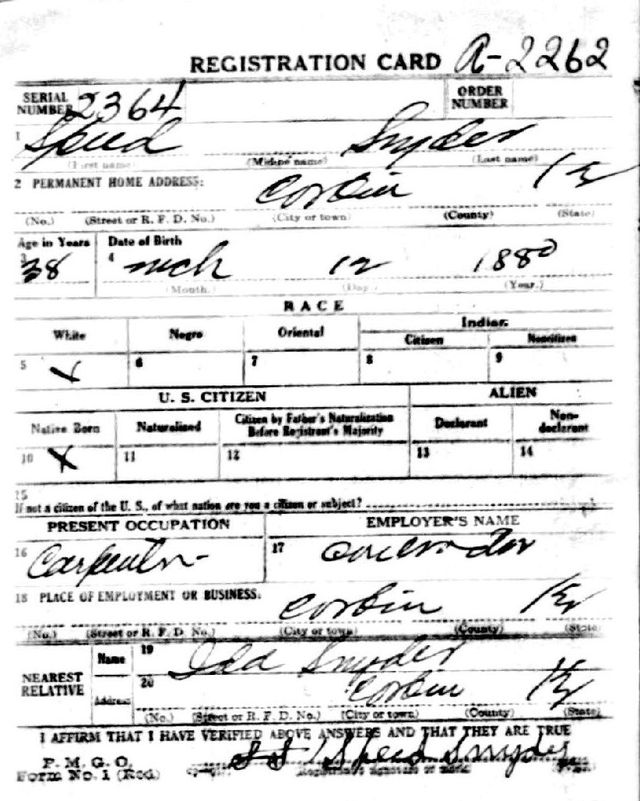 REGISTRATION CARD A-2262
SERIAL NUMBER 2364 ORDER NUMBER
1 Speed Snyder
(First name) (Middle name) (Last name)
2 PERMANENT HOME ADDRESS:
Corbin Ky
(No.) (Street or R. F. D. No.) (City or town) (County) (State)
Age in Years Date of Birth
3 38 4 Mch 12 1880
(Month.) (Day.) (Year.)
RACE
White Negro Oriental Indian
Citizen Noncitizen
5 X 6 7 8 9
U. S. CITIZEN ALIEN
Native Born Naturalized Citizen by Father's Naturalization Before Registrant's Majority Declarant Non-declarant
10 X 11 12 13 14
15
If not a citizen of the U. S., of what nation are you a citizen or subject?
PRESENT OCCUPATION EMPLOYER'S NAME
16 Carpenter 17
18 PLACE OF EMPLOYMENT OR BUSINESS:
Corbin Ky
(No.) (Street or R. F. D. No.) (City or town) (County) (State)
NEAREST RELATIVE Name 19 Ida Snyder
Address 20 Corbin Ky
(No.) (Street or R. F. D. No.) (City or town) (County) (State)
I AFFIRM THAT I HAVE VERIFIED ABOVE ANSWERS AND THAT THEY ARE TRUE
P. M. G. O.
Form No. 1 (Red) Speed Snyder
(Registrant's signature or mark)